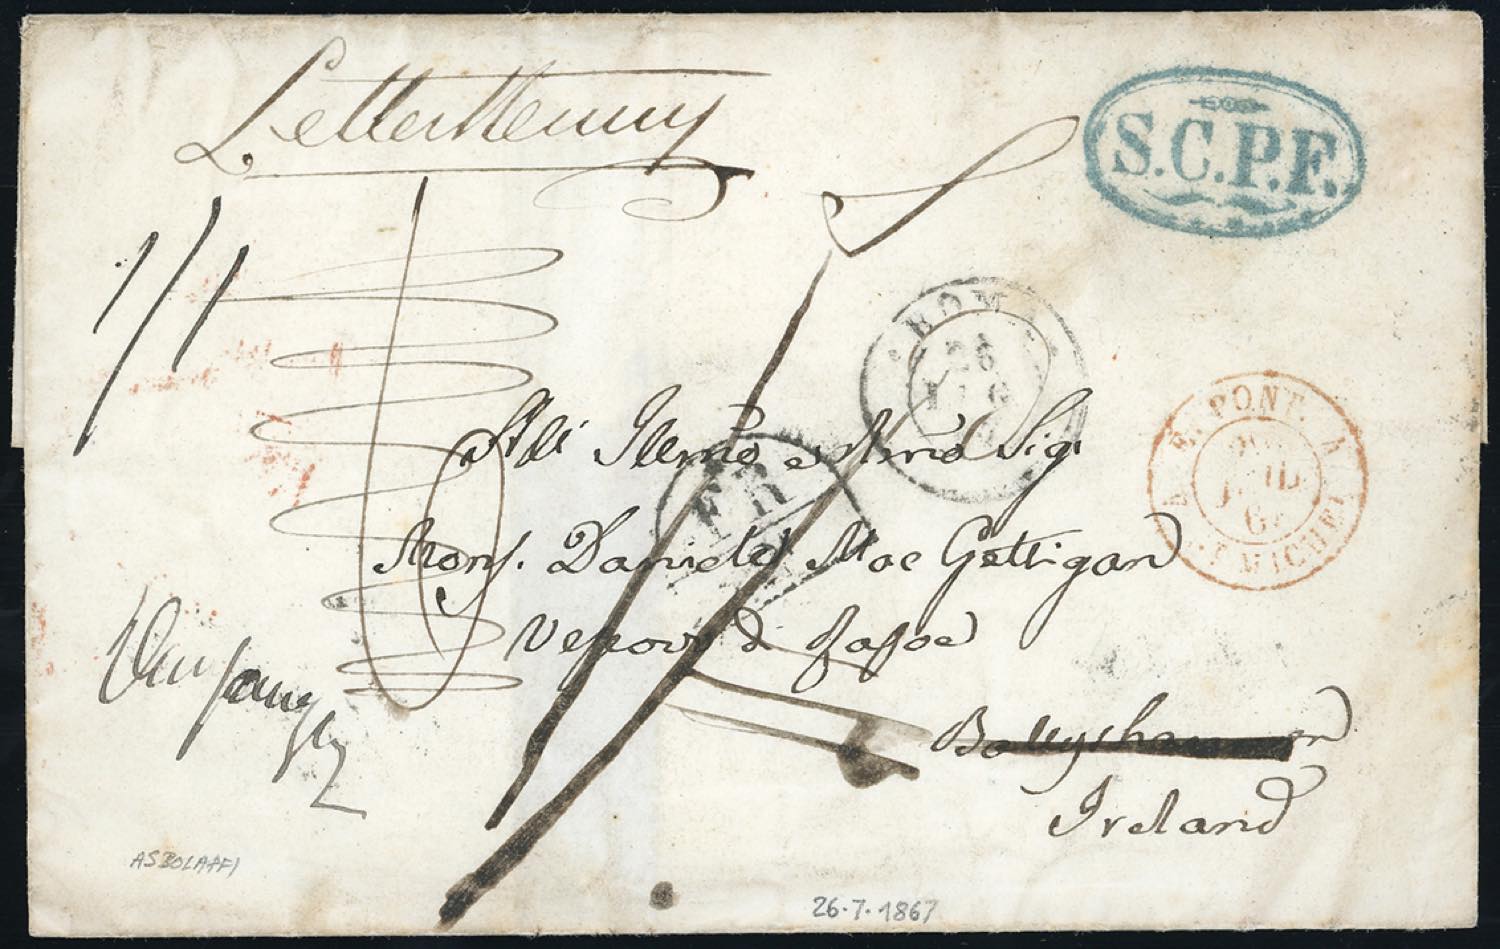 LetterKenny
S.C.P.F.
1/1
ROMA
26
LUG
E. PONT.
67
ST MICHEL
All' Illmo e Rmo Sig.
FR
Mons. Daniele Mac Gettigan
Vescovo di Rafoe
Ballyshannon
Ireland
ASBOLAFFI
26.7.1867